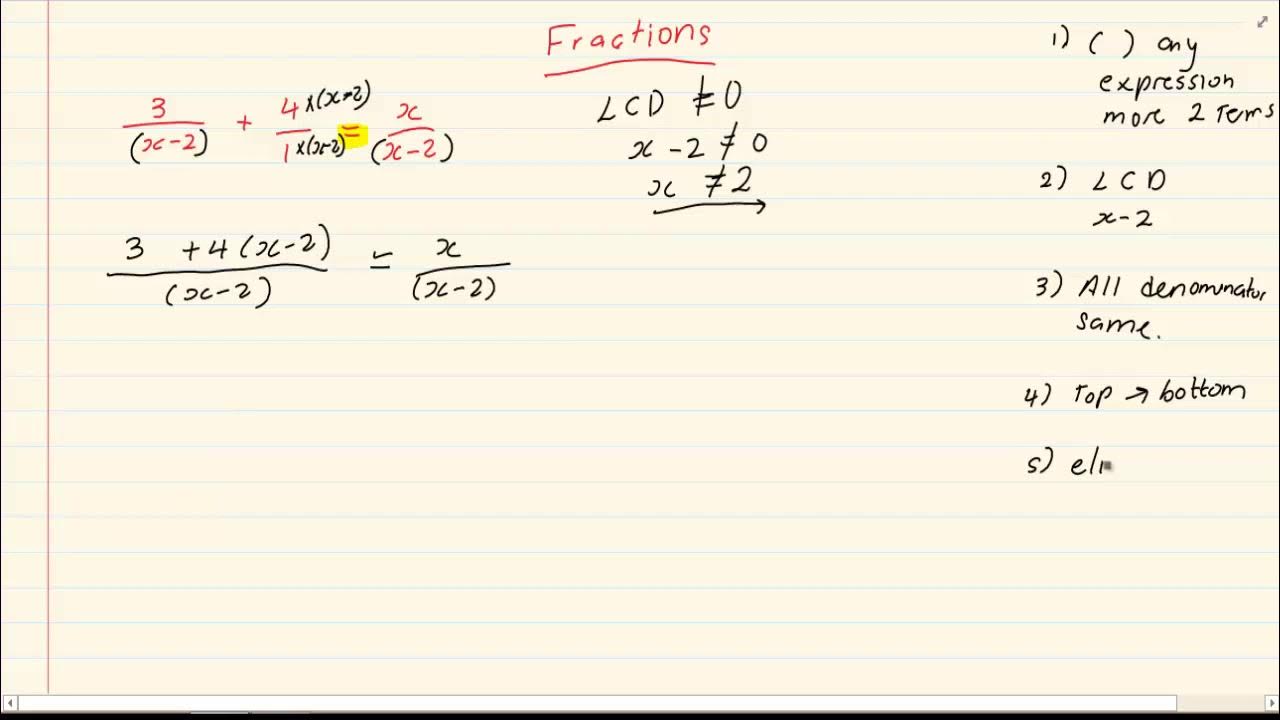 Fractions
3/(x-2) + 4×(x-2)/1×(x-2) = x/(x-2)
LCD ≠ 0
x - 2 ≠ 0
x ≠ 2
3 + 4(x-2)/(x-2) = x/(x-2)
1) ( ) any
expression
more 2 Terms
2) LCD
x-2
3) All denominator
same.
4) Top → bottom
5) eli